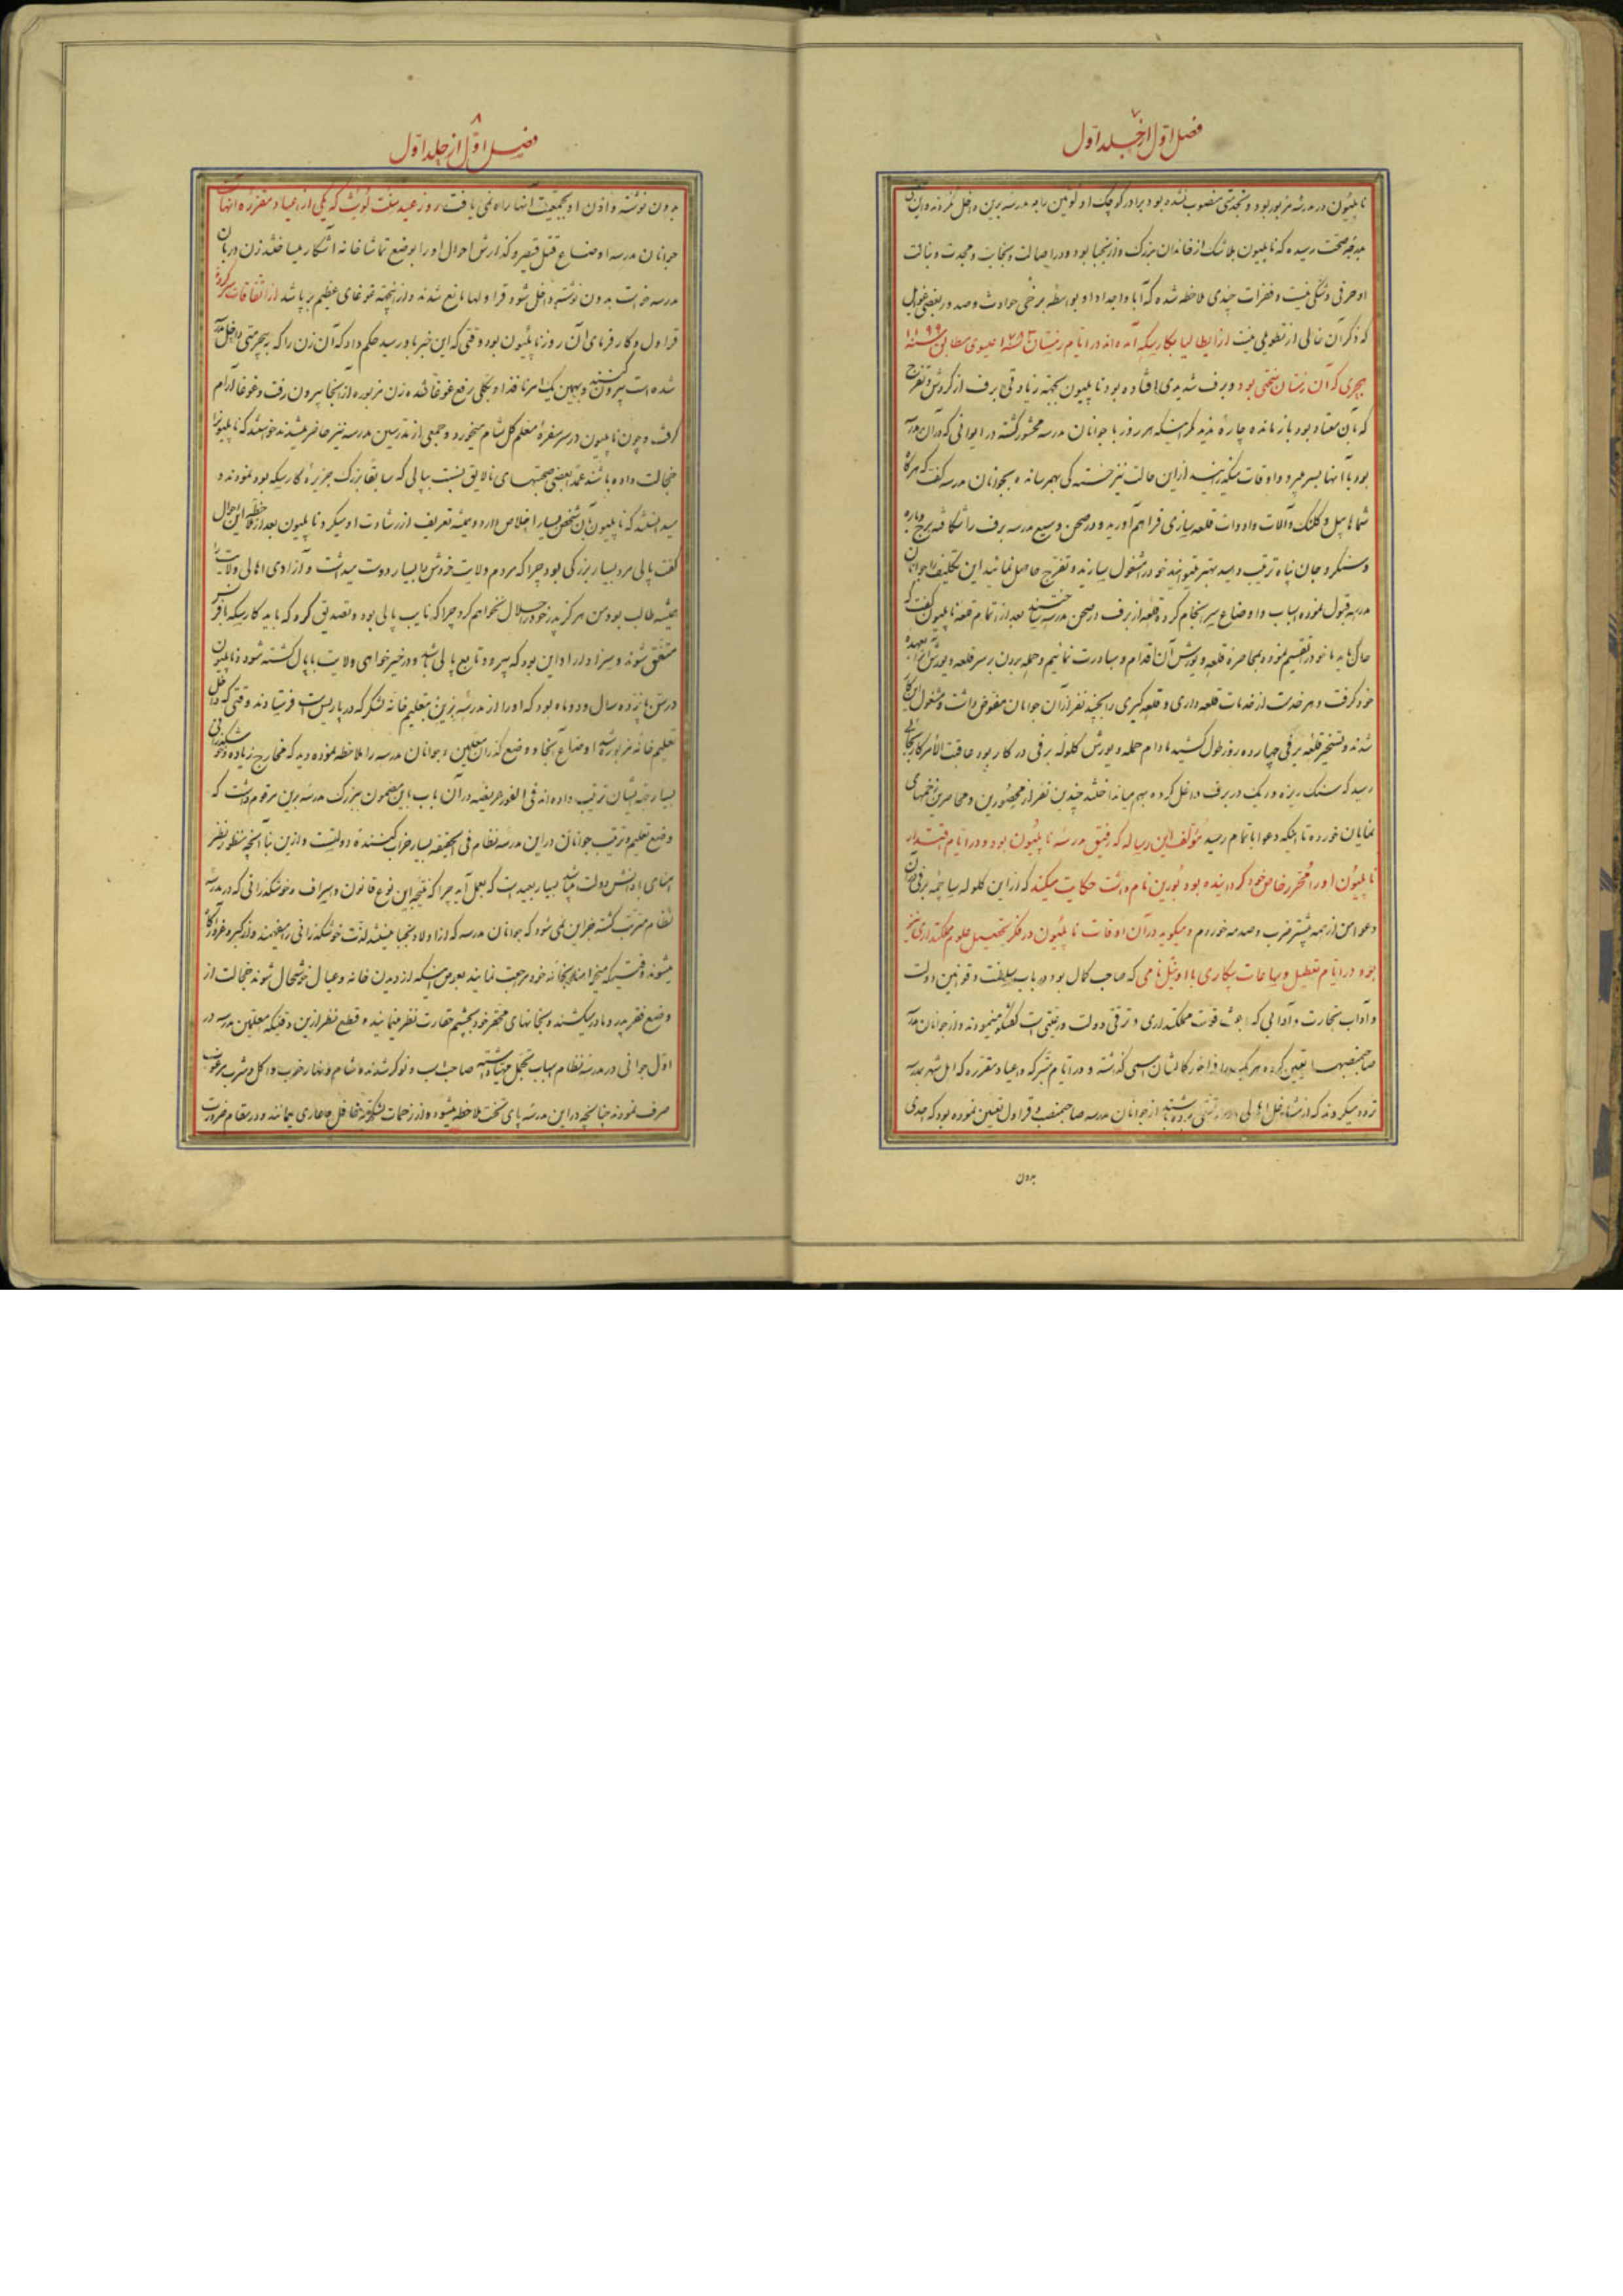 ۷
فصل اول از جلد اول
ناپلیون در مدرسه مزبور بود و بنجدتی منصوب نشده بود برادر کوچک او لوئین را به مدرسه برین داخل کردند و این
بدرجه صحت رسیده که ناپلیون بلا شک از خاندان بزرک و از نجبا بود و در اصالت و نجابت و مجدت و
او حرفی و شکی نیست و فقرات چندی ملاحظه شده که آبا و اجداد او بواسطه برخی حوادث و صدور بعضی
که ذکر آن خالی از تطویلی نیست از ایطالیا بکارسیکه آمده‌اند در ایام زمستان سنه ۱۷۸۳ عیسوی مطابق سنه ۱۱۹۹
هجری که آن زمستان سختی بود و برف شدیدی افتاده بود ناپلیون بجهة زیادتی برف از کردش و تفرج
که بآن معتاد بود باز مانده چارهٔ ندید مکر اینکه هر روز با جوانان مدرسه محشور کشته در ایوانی که در آن مدرسه
بود با آنها بسر میبرد و اوقات میکذرانید از این حالت نیز خستکی بهمرسانده بجوانان مدرسه کفت که هرکاه
شما بیل و کلنک و آلات و ادوات قلعه سازی فراهم آورید و در صحن وسیع مدرسه برف را شکافته برج و باره
و سنکر و جان پناه ترتیب دهید بهتر میتوانید خود را مشغول سازید و تفرج حاصل نمائید این تکلیف را جوانان
مدرسه قبول نموده اسباب و اوضاع سرانجام کرده قلعه از برف در صحن مدرسه ساختند بعد از اتمام قلعه ناپلیون کفت که
حال باید ما خود را تقسیم نموده بمحاصرهٔ قلعه و یورش آن اقدام و مبادرت نمائیم و حمله بردن بر سر قلعه و یورش را بعهده
خود کرفت و هر خدمت از خدمات قلعه داری و قلعه کیری را بچند نفر از آن جوانان مفوض داشت و مشغول این کار
شدند و تسخیر قلعه برفی چهارده روز طول کشید مادام حمله و یورش کلوله برفی در کار بود عاقبت الامر کار بجائی
رسید که سنک ریزه و ریک در برف داخل کرده بهم میانداختند چندین نفر از محصورین و محاصرین زخمهای
نمایان خورده تا اینکه دعوا باتمام رسید مؤلف این رساله که رفیق مدرسهٔ ناپلیون بود و در ایام اقتدار
ناپلیون او را محرر خاص خود کردانیده بود بورین نام داشت حکایت میکند که از این کلوله ساچمهٔ برفی در آن
دعوا من از همه بیشتر ضرب و صدمه خوردم و میکوید در آن اوقات ناپلیون در فکر تحصیل علوم مملکتداری نیز
بود در ایام تعطیل و ساعات بیکاری با اوئیل نامی که صاحب کمال بود در باب سلطنت و قوانین دولت
و آداب تجارت و آدابی که باعث قوت مملکتداری و ترقی دولت و رعیتی است کفتکو مینمودند و از جوانان مدرسه
صاحبمنصبها تعیین کرده هر یک اسمی کذاشته و در ایام متبرکه و اعیاد مقرره که اهل شهر بمدرسه
تردد میکردند که از تماشا داخل از جوانان مدرسه صاحبمنصب و قراول تعیین نموده بود که احدی
بدون
۸
فصل اول از جلد اول
بدون نوشته و اذن او بجمعیت آنها راه نمی یافت روز عید سنت لوئیس که یکی از اعیاد مقرره آنهاست
جوانان مدرسه اوضاع قتل قیصر و کذارش احوال او را بوضع تماشاخانه آشکار میساختند زن دربان
مدرسه خواست بدون نوشته داخل شود قراولها مانع شدند و از اینجهة غوغای عظیم برپا شد از اتفاقات سرکردهٔ
قراول و کارفرمای آن روز ناپلیون بود وقتی که این خبر باو رسید حکم داد که آن زن را که به بیحرمتی داخل مدرسه
شده است بیرون کنند و بهمین یک امر نافذ او بکلی رفع غوغا شده زن مزبوره از آنجا بیرون رفت و غوغا آرام
کرفت و چون ناپلیون در سر سفرهٔ معلم کل شام میخورد و جمعی از مدرسین مدرسه نیز حاضر میشدند خواستند که ناپلیون را
خجالت داده باشند عمداً بعضی صحبتهای نالایق نسبت بپالی که سابقاً بزرک جزیرهٔ کارسیکه بود نمودند و
میدانستند که ناپلیون بآن شخص بسیار اخلاص دارد و همیشه تعریف از رشادت او میکرد ناپلیون بعد از ملاحظه این احوال
کفت پالی مرد بسیار بزرکی بود چرا که مردم ولایت خودش را بسیار دوست میداشت و آزادی اهالی ولایت را
همیشه طالب بود من هرکز پدر خود را حلال نخواهم کرد چرا که نایب پالی بود و تصدیق کرد که باید کارسیکه بافرانسه
متفق شوند و سزاوار او این بود که پیرو و تابع پالی باشد و در خیرخواهی ولایت با پالی کشته شود ناپلیون
در سن پانزده سال و دو ماه بود که او را از مدرسه برین بتعلیم خانه لشکر که در پاریس است فرستادند وقتی که داخل
تعلیم خانه مزبوره شد اوضاع آنجا و وضع کذران معلمین و جوانان مدرسه را ملاحظه نموده دید که مخارج زیاده و خوشکذرانی
بسیار بجهة ایشان ترتیب داده‌اند فی الفور عریضه در آن باب باین مضمون ببزرک مدرسه برین مرقوم داشت که
وضع تعلیم و تربیت جوانان در این مدرسه نظام فی الحقیقه بسیار خراب کننده دولتست و از این بنا آنچه منظور نظر
امنای دانش دولت میباشد بسیار بعید است که بعمل آید چرا که نتیجه این نوع قانون و اسراف و خوشکذرانی که در مدرسه
نظام مترتب کشته جز این نمی شود که جوانان مدرسه که از اولاد نجبا هستند لذت خوشکذرانی را میفهمند و از کبر و غرور آکاه
میشوند وقتیکه میخواهند بخانه خود مراجعت نمایند بعوض اینکه از دیدن خانه و عیال خوشحال شوند خجالت از
وضع فقر پدر و مادر میکشند و بخانهای محقر خود بچشم حقارت نظر مینمایند و قطع نظر ازین وقتیکه معلمین مدرسه در
اول جوانی در مدرسه نظام اسباب تجمل مهیا داشته صاحب اسب و نوکر شدند با شام و نهار خوب و اکل و شرب مرغوب
صرف نمودند چنانچه در این مدرسه پای تخت ملاحظه میشود و از زحمات لشکر غافل و عاری میمانند و در مقام ضرورت